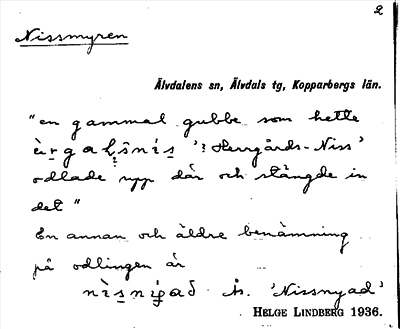 2
Nissmyren
Älvdalens sn, Älvdals tg, Kopparbergs län.
"en gammal gubbe som hette
'? Herrgårds-Niss'
odlade upp där och stängde in
det"
En annan och äldre benämning
på odlingen är
'Nissnyad'
HELGE LINDBERG 1936.